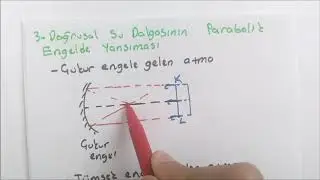 3- Doğrusal Su Dalgasının Parabolik
Engelde Yansıması
- Çukur engele gelen atma
K
L
Çukur
engel